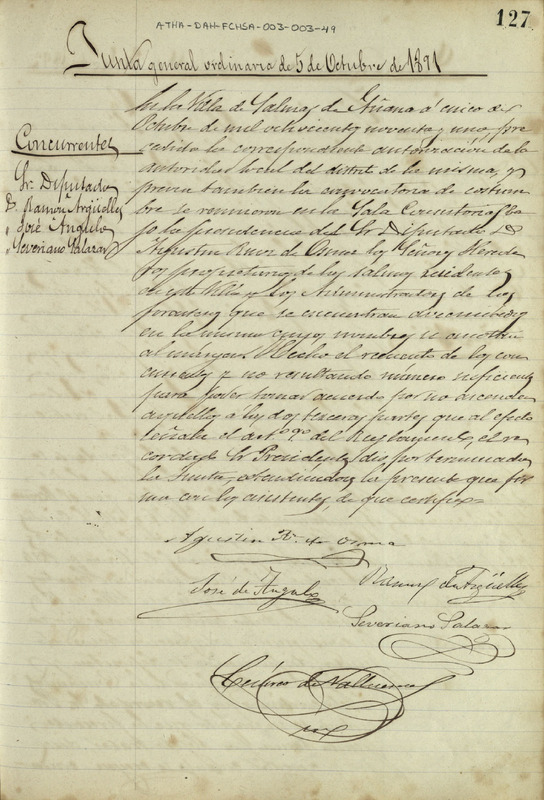 ATHA-DAH-FCHSA-003-003-49
127
Junta general ordinaria de 5 de Octubre de 1891
Concurrentes
Sr. Diputado
D. Ramon Argüelles
" José Angulo
" Severiano Salazar
En la Villa de Salinas de Añana á cinco de
Octubre de mil ochocientos noventa y uno, pre
cedida la correspondiente autorización de la
autoridad local del distrito de la misma, y
previa tambien la convocatoria de costum
bre se reunieron en la Sala Consistorial ba
jo la presidencia del Sr. Diputado D.
Agustin Ruiz de Osma los Señores Herede
ros propietarios de las salinas residentes
en esta Villa y los Administradores de los
forasteros que se encuentran avecindados
en la misma cuyos nombres se anotan
al margen. Hecho el recuento de los con
currentes y no resultando número suficiente
para poder tomar acuerdo por no ascender
aquellos a las dos terceras partes que al efecto
señala el art. 9º del Reglamento, el re
Sr. Presidente dió por terminada
la Junta, la presente que fir
ma con los asistentes, de que certifico=
Agustin R. de Osma
José de Angulo
Ramon de Argüelles
Severiano Salazar